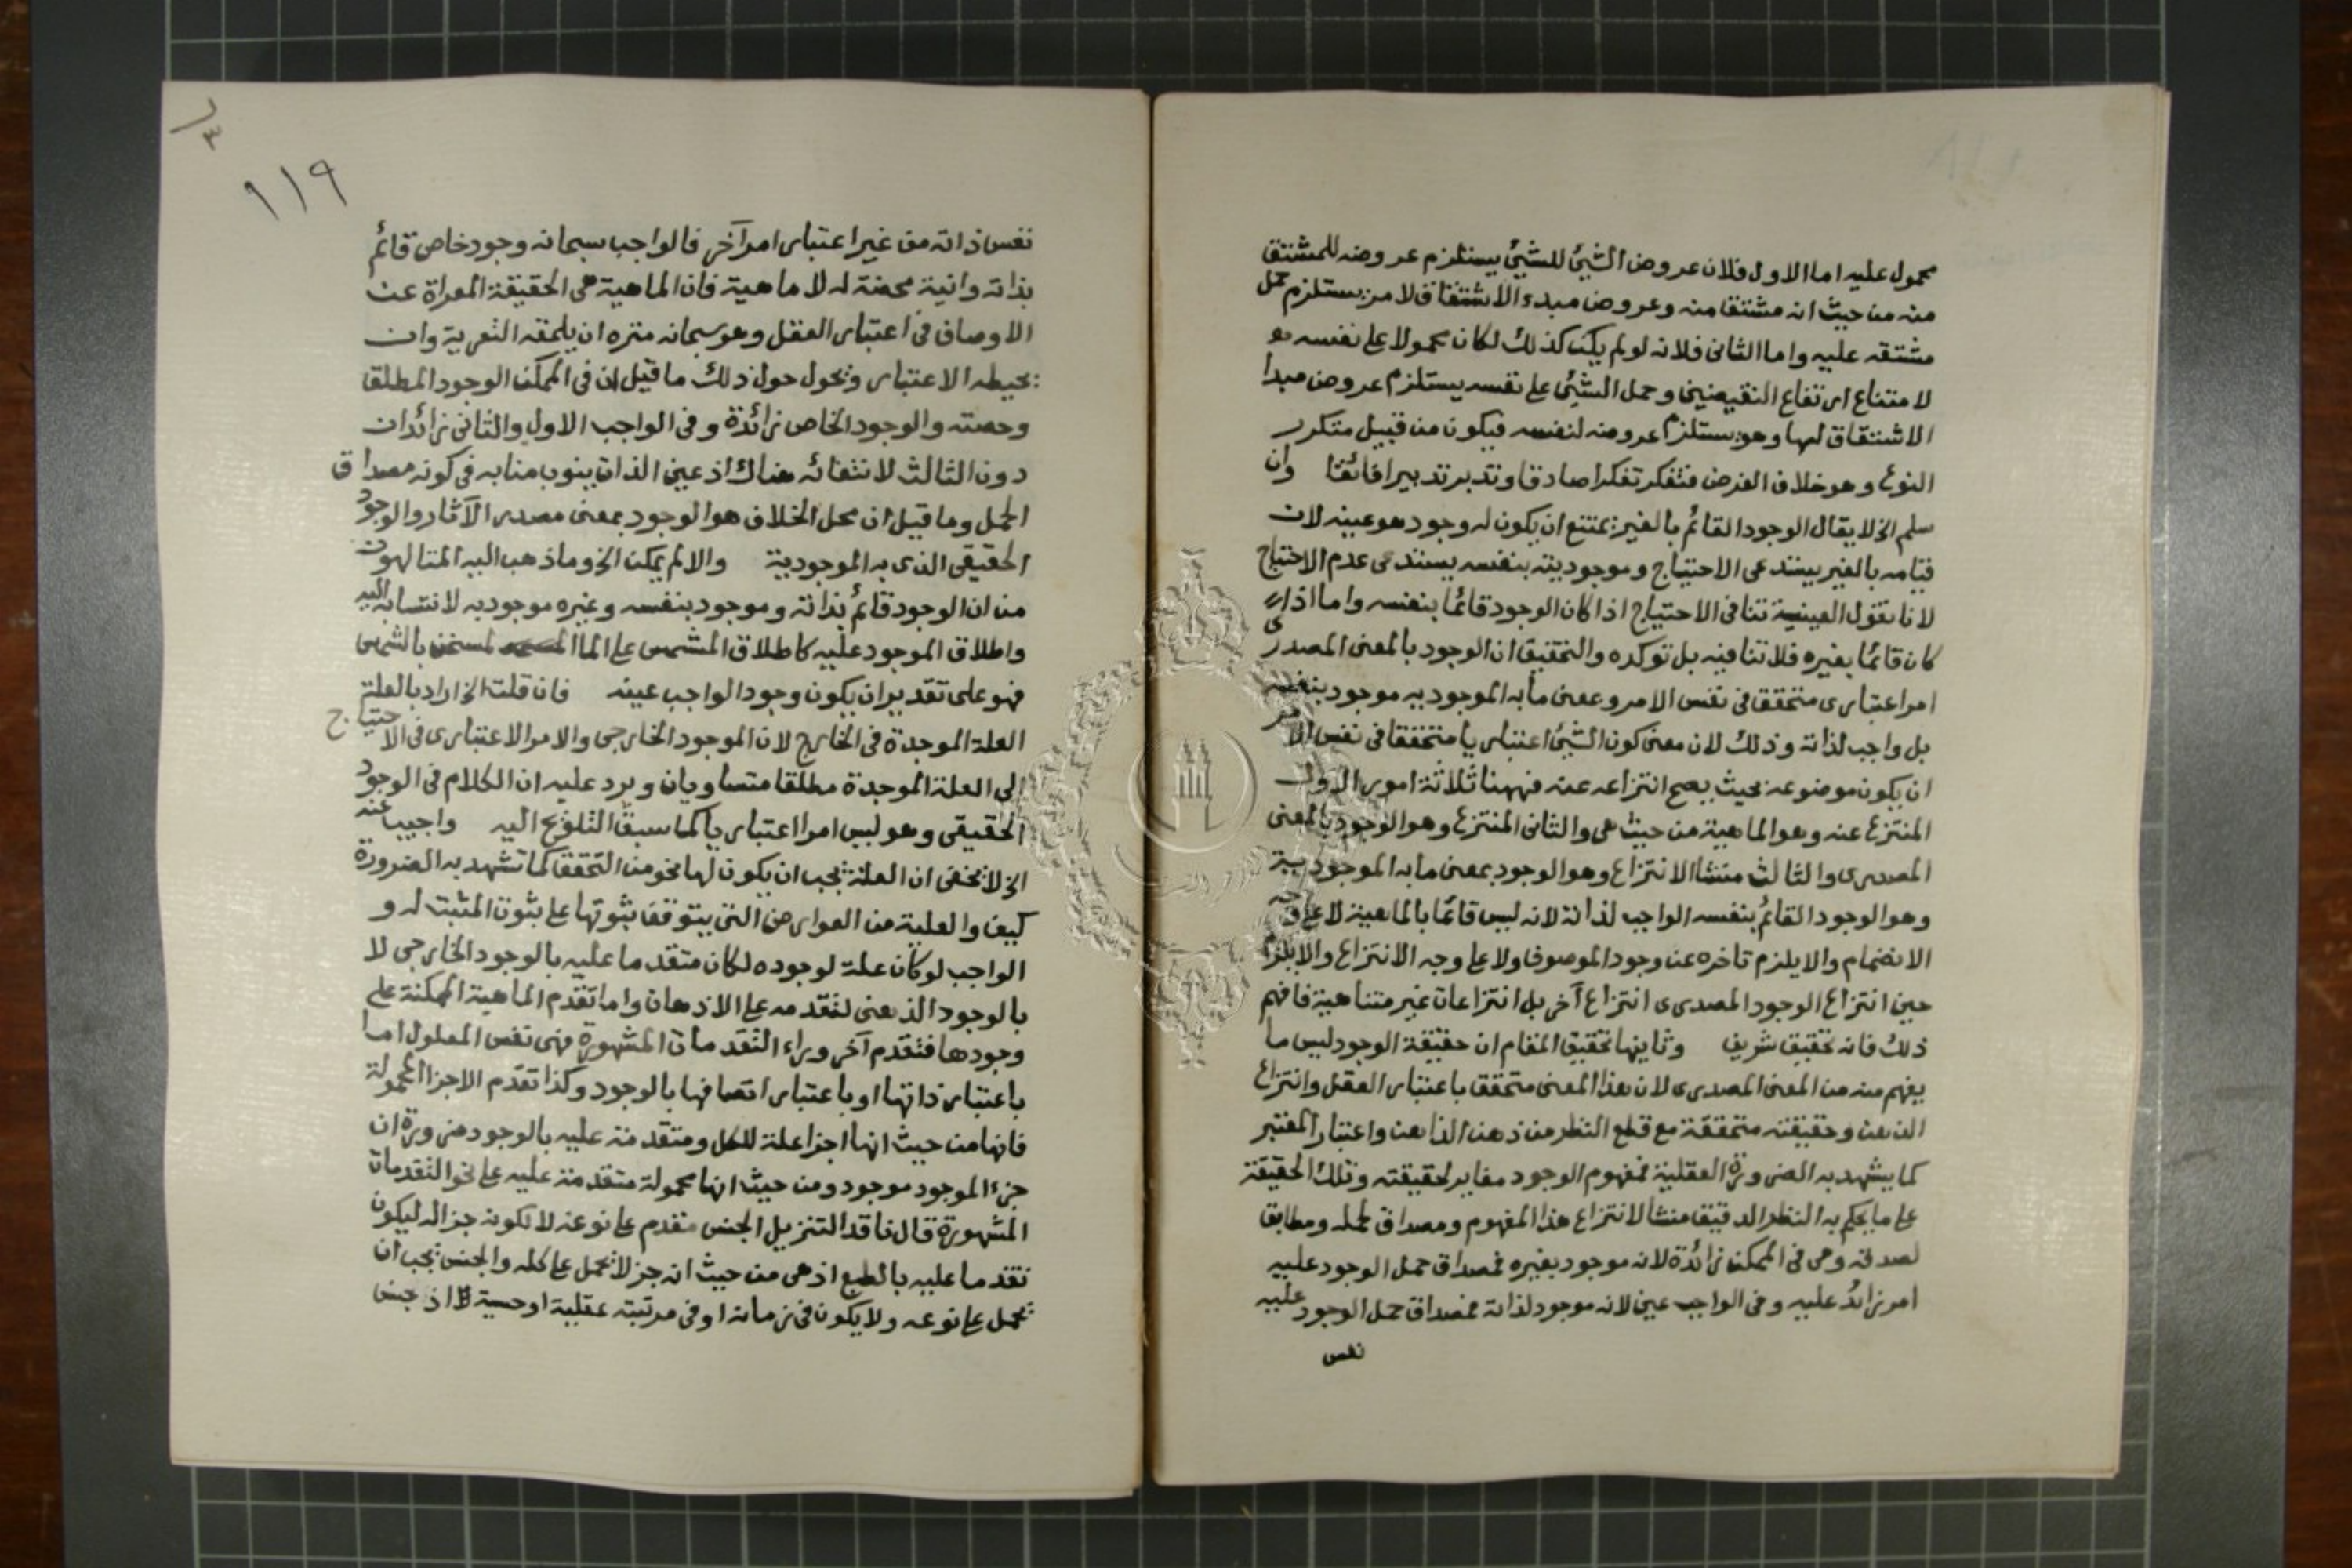 محمول عليه اما الاول فلان عروض الشئ للشئ يستلزم عروضه للمشتق
منه من حيث انه مشتقا منه وعروض مبدء الاشتقاق لامر يستلزم حمل
مشتقه عليه واما الثانى فلانه لو لم يكن كذلك لكان محمولا على نفسه
لامتناع ارتفاع النقيضين وحمل الشئ على نفسه يستلزم عروض مبدا
الاشتقاق لها وهو يستلزم عروضه لنفسه فيكون من قبيل متكرر
النوع وهو خلاف الفرض فتفكر تفكرا صادقا وتدبر تدبيرا فائقا وان
سلم الخ لا يقال الوجود القائم بالغير يمتنع ان يكون له وجود هو عينه لان
قيامه بالغير يستدعى الاحتياج وموجوديته بنفسه يستدعى عدم الاحتياج
لانا نقول العينية تنافى الاحتياج اذا كان الوجود قائما بنفسه واما اذا
كان قائما بغيره فلا تنافيه بل توكده والتحقيق ان الوجود بالمعنى المصدرى
امر اعتبارى متحقق فى نفس الامر وبمعنى ما به الموجودية موجود بنفسه
بل واجب لذاته وذلك لان معنى كون الشئ اعتباريا متحققا فى نفس الامر
ان يكون موضوعه بحيث يصح انتزاعه عنه فههنا ثلاثة امور الاول
المنتزع عنه وهو الماهية من حيث هى والثانى المنتزع وهو الوجود بالمعنى
المصدرى والثالث منشا الانتزاع وهو الوجود بمعنى ما به الموجودية
وهو الوجود القائم بنفسه الواجب لذاته لانه ليس قائما بالماهية لا على وجه
الانضمام والا يلزم تاخره عن وجود الموصوف ولا على وجه الانتزاع والا يلزم
حين انتزاع الوجود المصدرى انتزاع آخر بل انتزاعات غير متناهية فافهم
ذلك فانه تحقيق شريف وثانيها تحقيق المقام ان حقيقة الوجود ليس ما
يفهم منه من المعنى المصدرى لان هذا المعنى متحقق باعتبار العقل وانتزاع
الذهن وحقيقته متحققة مع قطع النظر من ذهن الذاهن واعتبار المعتبر
كما يشهد به الضرورة العقلية فمفهوم الوجود مغاير لحقيقته وتلك الحقيقة
على ما يحكم به النظر الدقيق منشا لانتزاع هذا المفهوم ومصداق لحمله ومطابق
لصدقه وهى فى الممكن زائدة لانه موجود بغيره فمصداق حمل الوجود عليه
امر زائد عليه وفى الواجب عين لانه موجود لذاته فمصداق حمل الوجود عليه
نفس
١١٩
٣
نفس ذاته من غير اعتبار امر آخر فالواجب سبحانه وجود خاص قائم
بذاته وانية محضة له لا ماهية فان الماهية هى الحقيقة المعراة عن
الاوصاف فى اعتبار العقل وهو سبحانه منزه ان يلحقه التعرية وان
يحيطه الاعتبار ونحول حول ذلك ما قيل ان فى الممكن الوجود المطلق
وحصته والوجود الخاص زائدة وفى الواجب الاول والثانى زائدان
دون الثالث لانتفائه هناك اذ عين الذات ينوب منابه فى كونه مصداق
الحمل وما قيل ان محل الخلاف هو الوجود بمعنى مصدر الآثار والوجود
الحقيقى الذى به الموجودية والا لم يكن الخ وما ذهب اليه المتالهون
من ان الوجود قائم بذاته وموجود بنفسه وغيره موجود به لانتسابه اليه
واطلاق الموجود عليه كاطلاق المشمس على الما المسخن بالشمس
فهو على تقدير ان يكون وجود الواجب عينه فان قلت الخ اراد بالعلة
العلة الموجدة فى الخارج لان الموجود الخارجى والامر الاعتبارى فى الاحتياج
الى العلة الموجدة مطلقا متساويان ويرد عليه ان الكلام فى الوجود
الحقيقى وهو ليس امرا اعتباريا كما سبق التلويح اليه واجيب عنه
الخ لا يخفى ان العلة يجب ان يكون لها نحو من التحقق كما تشهد به الضرورة
كيف والعلية من العوارض التى يتوقف ثبوتها على ثبوت المثبت له و
الواجب لو كان علة لوجوده لكان متقدما عليه بالوجود الخارجى لا
بالوجود الذهنى لتقدمه على الاذهان واما تقدم الماهية الممكنة على
وجودها فتقدم آخر وراء التقدمات المشهورة فهى نفس المعلول اما
باعتبار ذاتها او باعتبار اتصافها بالوجود وكذا تقدم الاجزا المحمولة
فانها من حيث انها اجزا علة للكل ومتقدمة عليه بالوجود ضرورة ان
جزء الموجود موجود ومن حيث انها محمولة متقدمة عليه على نحو التقدمات
المشهورة قال ناقد التنزيل الجنس متقدم على نوعه لا لكونه جزا له ليكون
تقدما عليه بالطبع اذ هى من حيث انه جز لا يحمل على كله والجنس يجب ان
يحمل على نوعه ولا يكون فى زمانه او فى مرتبة عقلية او حسية اذ جنس